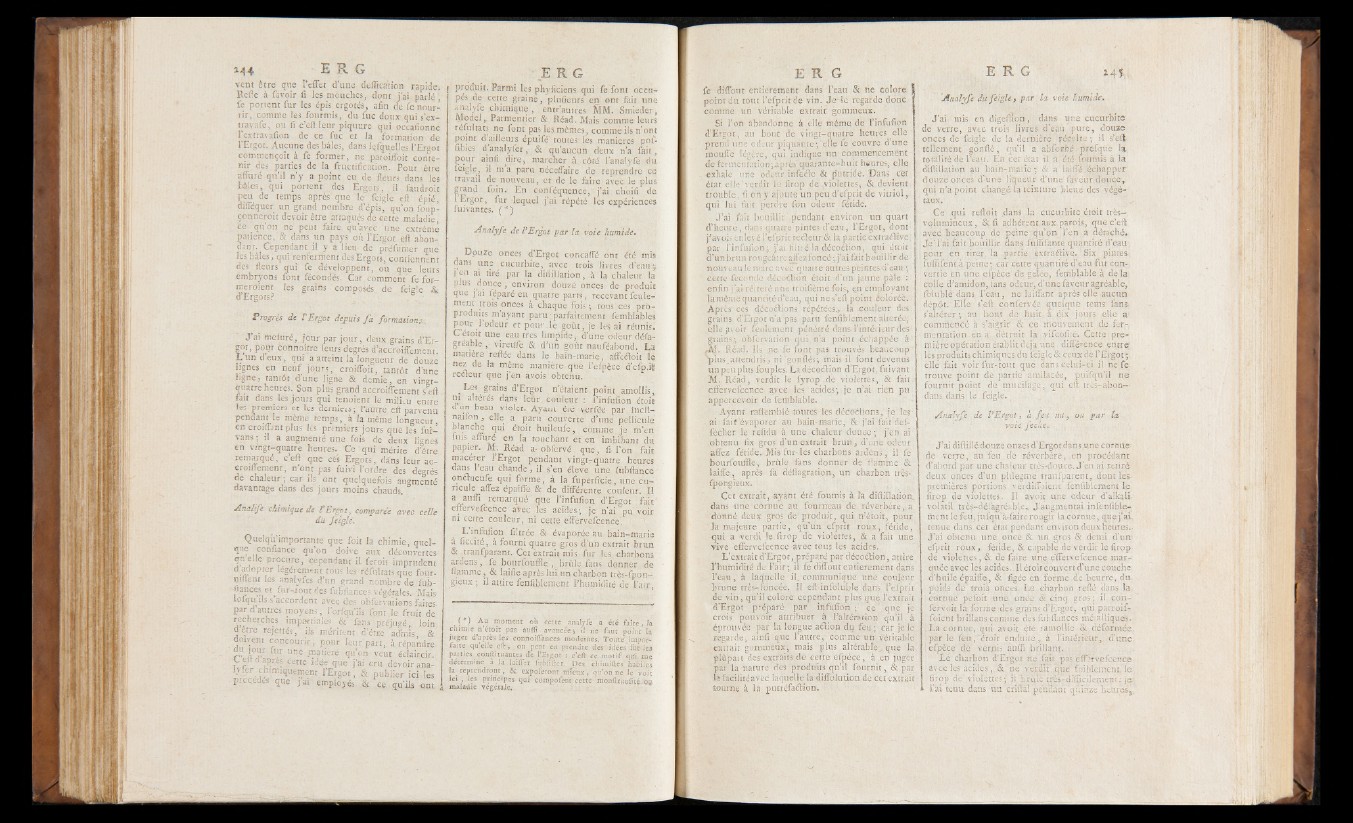 244 E R G
vent être que l'effet d'une dessiccation rapide.
Reste à savoir si les mouches, dont j'ai parlé,
se portent sur les épis ergotés, afin de se nour-
rir, comme les fourmis, du suc doux qui s'ex-
travase, ou si c'est leur piquure qui occasionne
l'extravasion de ce suc et la formation de
l'Ergot. Aucune des bâles, dans lesquelles l'Ergot
commençoit à se former, ne paroissoit conte-
nir des parties de la fructification. Pour être
assuré qu'il n'y a point eu de fleurs dans les
bâles, qui portent des Ergots, il faudroit
peu de temps après que le seigle est épié,
disséquer un grand nombre d'épis, qu'on soup-
çonneroit devoir être attaqués de cette maladie,
ce qu'on ne peut faire qu'avec une extrême
patience, & dans un pays où l'Ergot est abon-
dant. Cependant il y a lieu de présumer que
les bâles, qui renferment des Ergots, contiennent
des fleurs qui se développent, ou que leurs
embryons sont fécondés. Car comment se for-
meroient les grains composés de seigle &
d'Ergots?
Progrès de l'Ergot depuis sa formation.
J'ai mesuré, jour par jour, deux grains d'Er-
got, pour connoître leurs degrés d'accroissement.
L'un d'eux, qui a atteint la longueur de douze
lignes en neuf jours, croissoit, tantôt d'une
ligne, tantôt d'une ligne & demie, en vingt-
quatre heures. Son plus grand accroissement s'est
fait dans les jours qui tenoient le milieu entre
les premiers et les derniers; l'autre est parvenu
pendant le même temps, à la même longueur,
en croissant plus les premiers jours que les sui-
vans: il a augmenté une fois de deux lignes
en vingt-quatre heures. Ce qui mérite d'être
remarqué, c'est que ces Ergots, dans leur ac-
croissement, n'ont pas suivi l'ordre des degrés
de chaleur; car ils ont quelquefois augmenté
davantage dans des jours moins chauds.
Analyse chimique de l'Ergot, comparée avec celle
du seigle.
Quelqu'importante que soit la chimie, quel-
que confiance qu'on doive aux découvertes
qu'elle procure, cependant il seroit imprudent
d'adopter légèrement tous les résultats que four-
nissent les analyses d'un grand nombre de sub-
stances et sur-tout des substances végétales. Mais
lorsqu'ils s'accordent avec des observations faites
par d'autres moyens, lorsqu'ils sont le fruit de
recherches impartiales & sans préjugé, loin
d'être rejettés, ils méritent d'être admis, &
doivent concourir, pour leur part, à répandre
du jour sur une matière qu'on veut éclaircir.
C'est d'après cette idée que j'ai cru devoir ana-
lyser chimiquement l'Ergot, & publier ici les
procédés que j'ai employés & ce qu'ils ont
E R G
produit. Parmi les physiciens qui se sont occu-
pés de cette graine, plusieurs en ont fait une
analyse chimique, entr'autres MM. Smieder,
Model, Parmentier & Réad. Mais comme leurs
résultats ne sont pas les mêmes, comme ils n'ont
point d'ailleurs épuisé toutes les manières pos-
sibles d'analyser, & qu'aucun deux n'a fait,
pour ainsi dire, marcher à côté l'analyse du
seigle, il m'a paru nécessaire de reprendre ce
travail de nouveau, et de le faire avec le plus
grand soin. En conséquence, j'ai choisi de
l'Ergot, sur lequel j'ai répété les expériences
suivantes. (*)
Analyse de l'Ergot par la voie humide.
Douze onces d'Ergot concassé ont été mis
dans une cucurbite, avec trois livres d'eau;
j'en ai tiré par la distillation, à la chaleur la
plus douce, environ douze onces de produit
que j'ai séparé en quatre parts, recevant seule-
ment trois onces à chaque fois; tous ces pro-
produits m'ayant paru parfaitement semblables
pour l'odeur et pour le goût, je les ai réunis.
C'étoit une eau très limpide, d'une odeur désa-
gréable, vireuse & d'un goût nauséabond. La
matière restée dans le bain-marie, affectoit le
nez de la même manière que l'espèce d'esprit
recteur que j'en avois obtenu.
Les grains d'Ergot n'étaient point amollis,
ni altérés dans leur couleur: l'infusion étoit
d'un beau violet. Ayant été versée par incli-
naison, elle a paru couverte d'une pellicule
blanche qui étoit huileuse, comme je m'en
suis assuré en la touchant et en imbibant du
papier. M. Réad a observé que, si l'on fait
macérer l'Ergot pendant vingt-quatre heures
dans l'eau chaude, il s'en élève une substance
onctueuse qui forme, à la superficie, une cu-
ticule assez épaisse & de différente couleur. Il
a aussi remarqué que l'infusion d'Ergot fait
effervescence avec les acides; je n'ai pu voir
ni cette couleur, ni cette effervescence.
L'infusion filtrée & évaporée au bain-marie
à siccité, a fourni quatre gros d'un extrait brun
& transparant. Cet extrait mis sur les charbons
ardens, se boursouffle, brûle sans donner de
flamme, & laisse après lui un charbon très-spon-
gieux; il attire sensiblement l'humidité de l'air,
(*) Au moment où cette analyse a été faite, la
chimie n'étoit pas aussi avancée; il ne faut point la
juger d'après les connoissances modernes. Toute impar-
faite qu'elle est, on peut en prendre des idées sur les
parties constituantes de l'Ergot: c'est ce motif qui me
détermine à la laisser subsister. Des chimistes habiles
la reprendront, & exposeront mieux, qu'on ne le voit
ici, les principes qui composent cette monstruosité ou
maladie végétale.
E R G
se dissout entierement dans l'eau & ne colore
point du tout l'esprit de vin. Je le regarde donc
comme un véritable extrait gommeux.
Si l'on abandonne à elle même de l'infusion
d'Ergot, au bout de vingt-quatre heures elle
prend une odeur piquante; elle se couvre d'une
mousse légère, qui indique un commencement
de fermentation; après quarante-huit heures, elle
exhale une odeur infecte & putride. Dans cet
état elle verdit le sirop de violettes, & devient
trouble; si on y ajoute un peu d'esprit de vitriol,
qui lui fait perdre son odeur fétide.
J'ai fait bouillir pendant environ un quart
d'heure, dans quatre pintes d'eau, l'Ergot, dont
j'avois enlevé l'esprit recteur & la partie extractive
par l'infusion; j'ai filtré la décoction, qui étoit
d'un brun rougeâtre assez foncé; j'ai fait bouillir de
nouveau le marc avec quatre autres peintes d'eau;
cette seconde décoction étoit d'un jaune pâle:
enfin j'ai réitéré une troisième fois, en employant
la même quantité d'eau, qui ne s'est point colorée.
Après ces décoctions répétées, la couleur des
grains d'Ergot n'a pas paru sensiblement altérée;
elle avoit seulement pénétré dans l'intérieur des
grains; observation qui n'a point échappée à
M. Réad. Ils ne se sont pas trouvés beaucoup
plus attendris, ni gonflés, mais il sont devenus
un peu plus souples. La décoction d'Ergot, suivant
M. Réad, verdit le syrop de violettes, & fait
effervescence avec les acides; je n'ai rien pu
appercevoir de semblable.
Ayant rassemblé toutes les décoctions, je les
ai fait évaporer au bain-marie, & j'ai fait des-
sécher le résidu à une chaleur douce; j'en ai
obtenu six gros d'un extrait brun, d'une odeur
assez fétide. Mis sur les charbons ardens, il se
boursouffle, brûle sans donner de flamme &
laisse, après sa déflagration, un charbon très-
spongieux.
Cet extrait, ayant été soumis à la distillation
dans une cornue au fourneau de réverbère, a
donné deux gros de produit, qui n'étoit, pour
la majeure partie, qu'un esprit roux, fétide,
qui a verdi le sirop de violettes, & a fait une
vive effervescence avec tous les acides.
L'extrait d'Ergot, préparé par décoction, attire
l'humidité de l'air; il se dissout entierement dans
l'eau, à laquelle il communique une couleur
brune très-foncée. Il est insoluble dans l'esprit
de vin, qu'il colore cependant plus que l'extrait
d'Ergot préparé par infusion; ce que je
crois pouvoir attribuer à l'altération qu'il a
éprouvée par la longue action du feu; car je le
regarde, ainsi que l'autre, comme un véritable
extrait gommeux, mais plus altérable que la
plûpart des extraits de cette espèce, à en juger
par la nature des produits qu'il fournit, & par
la facilité avec laquelle la dissolution de cet extrait
tourne à la putréfaction.
E R G 245
Analyse du seigle, par la voie humide.
J'ai mis en digestion, dans une cucurbite
de verre, avec trois livres d'eau pure, douze
onces de seigle de la dernière récolte; il s'est
tellement gonflé, qu'il a absorbé presque la
totalité de l'eau. En cet état il a été soumis à la
distillation au bain-marie; & a laissé échapper
douze onces d'une liqueur d'une saveur douce,
qui n'a point changé la teinture bleue des végé-
taux.
Ce qui restoit dans la cucurbite étoit très-
volumineux, & si adhérent aux parois, que c'est
avec beaucoup de peine qu'on l'en a détaché.
Je l'ai fait bouillir dans suffisante quantité d'eau
pour en tirer la partie extractive. Six pintes
suffisent à peine; car cette quantité d'eau fut con-
vertie en une espèce de gelée, semblable à de la
colle d'amidon, sans odeur, d'une saveur agréable,
soluble dans l'eau, ne laissant après elle aucun
dépôt. Elle s'est conservée quelque tems sans
s'altérer; au bout de huit à dix jours elle a
commencé à s'aigrir & ce mouvement de fer-
mentation en a détruit la viscosité. Cette pre-
mière opération établit déja une différence entre
les produits chimiques du seigle & ceux de l'Ergot;
elle fait voir sur-tout que dans celui-ci il ne se
trouve point de partie amilacée, puisqu'il ne
fournit point de mucilage, qui est très-abon-
dant dans le seigle.
Analyse de l'Ergot, à feu nu, ou par la
voie seche.
J'ai distillé douze onces d'Ergot dans une cornue
de verre, au feu de réverbère, en procédant
d'abord par une chaleur très-douce. J'en ai retiré
deux onces d'un phlegme transparent, dont les
premières portions verdissoient sensiblement le
sirop de violettes. Il avoit une odeur d'alkali
volatil très-désagréable. J'augmentai insensible-
ment le feu, jusqu'à faire rougir la cornue, que j'ai
tenue dans cet état pendant environ deux heures.
J'ai obtenu une once & un gros & demi d'un
esprit roux, fétide, & capable de verdir le sirop
de violettes, & de faire une effervescence mar-
quée avec les acides. Il étoit couvert d'une couche
d'huile épaisse, & figée en forme de beurre, du
poids de trois onces. Le charbon resté dans la
cornue pesoit une once & cinq gros; il con-
servoit la forme des grains d'Ergot, qui parois-
soient brillans comme des substances métalliques.
La cornue, qui avoit été ramollie & déformée
par le feu, étoit enduite, à l'intérieur, d'une
espèce de vernis aussi brillant.
Le charbon d'Ergot ne fait pas effervescence
avec les acides, & ne verdit que foiblement le
sirop de violettes; il brule très-difficilement; je
l'ai tenu dans un cristal pendant quinze heures,